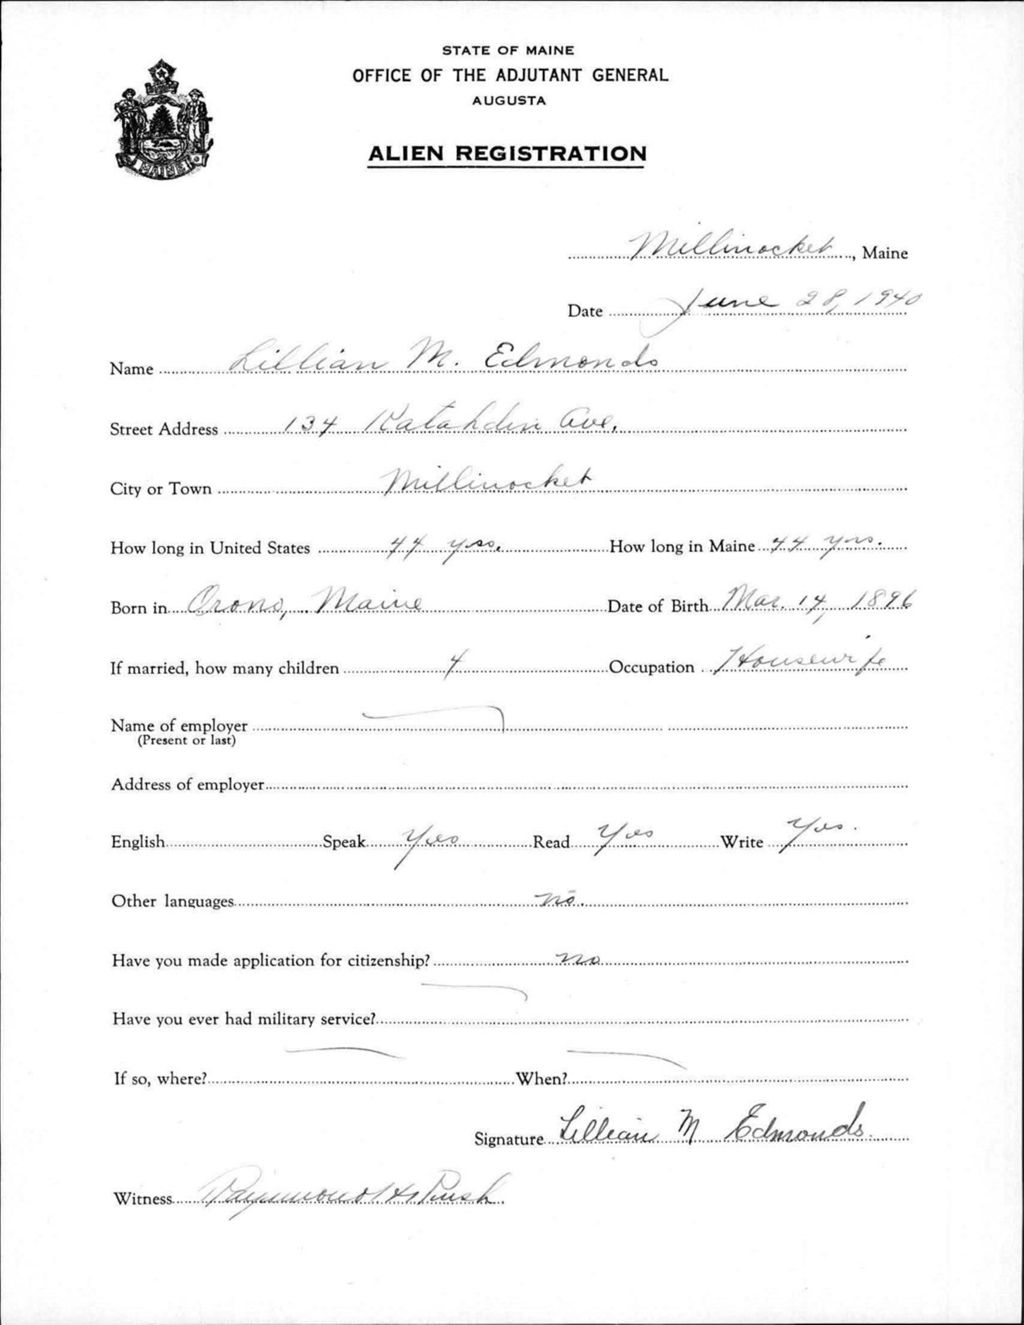 STATE OF MAINE
OFFICE OF THE ADJUTANT GENERAL
AUGUSTA
ALIEN REGISTRATION
MAINE
Millinocket, Maine
Date June 28, 1940
Name Lillian M. Edmonds
Street Address 134 Katahdin Ave.
City or Town Millinocket
How long in United States 44 yrs. How long in Maine 44 yrs.
Born in Orono, Maine Date of Birth Mar. 14, 1896
If married, how many children 4 Occupation Housewife
Name of employer
(Present or last)
Address of employer
English Speak Yes Read Yes Write Yes.
Other languages no.
Have you made application for citizenship? no
Have you ever had military service?
If so, where? When?
Signature Lillian M Edmonds
Witness Raymond H. Rush